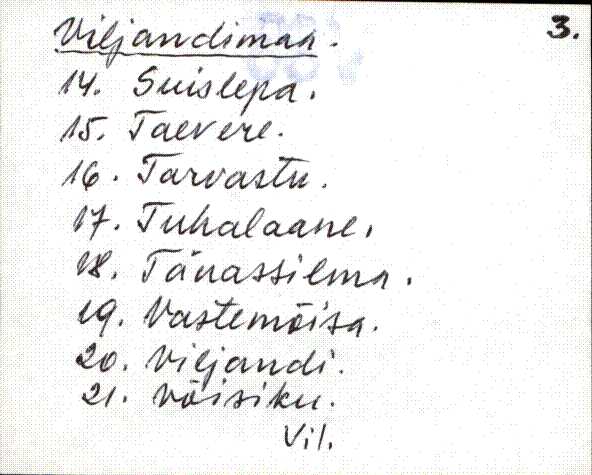 Viljandimaa. 3.
14. Suislepa.
15. Taevere.
16. Tarvastu.
17. Tuhalaane.
18. Tänassilma.
19. Vastemõisa.
20. Viljandi.
21. Võisiku.
Vil.